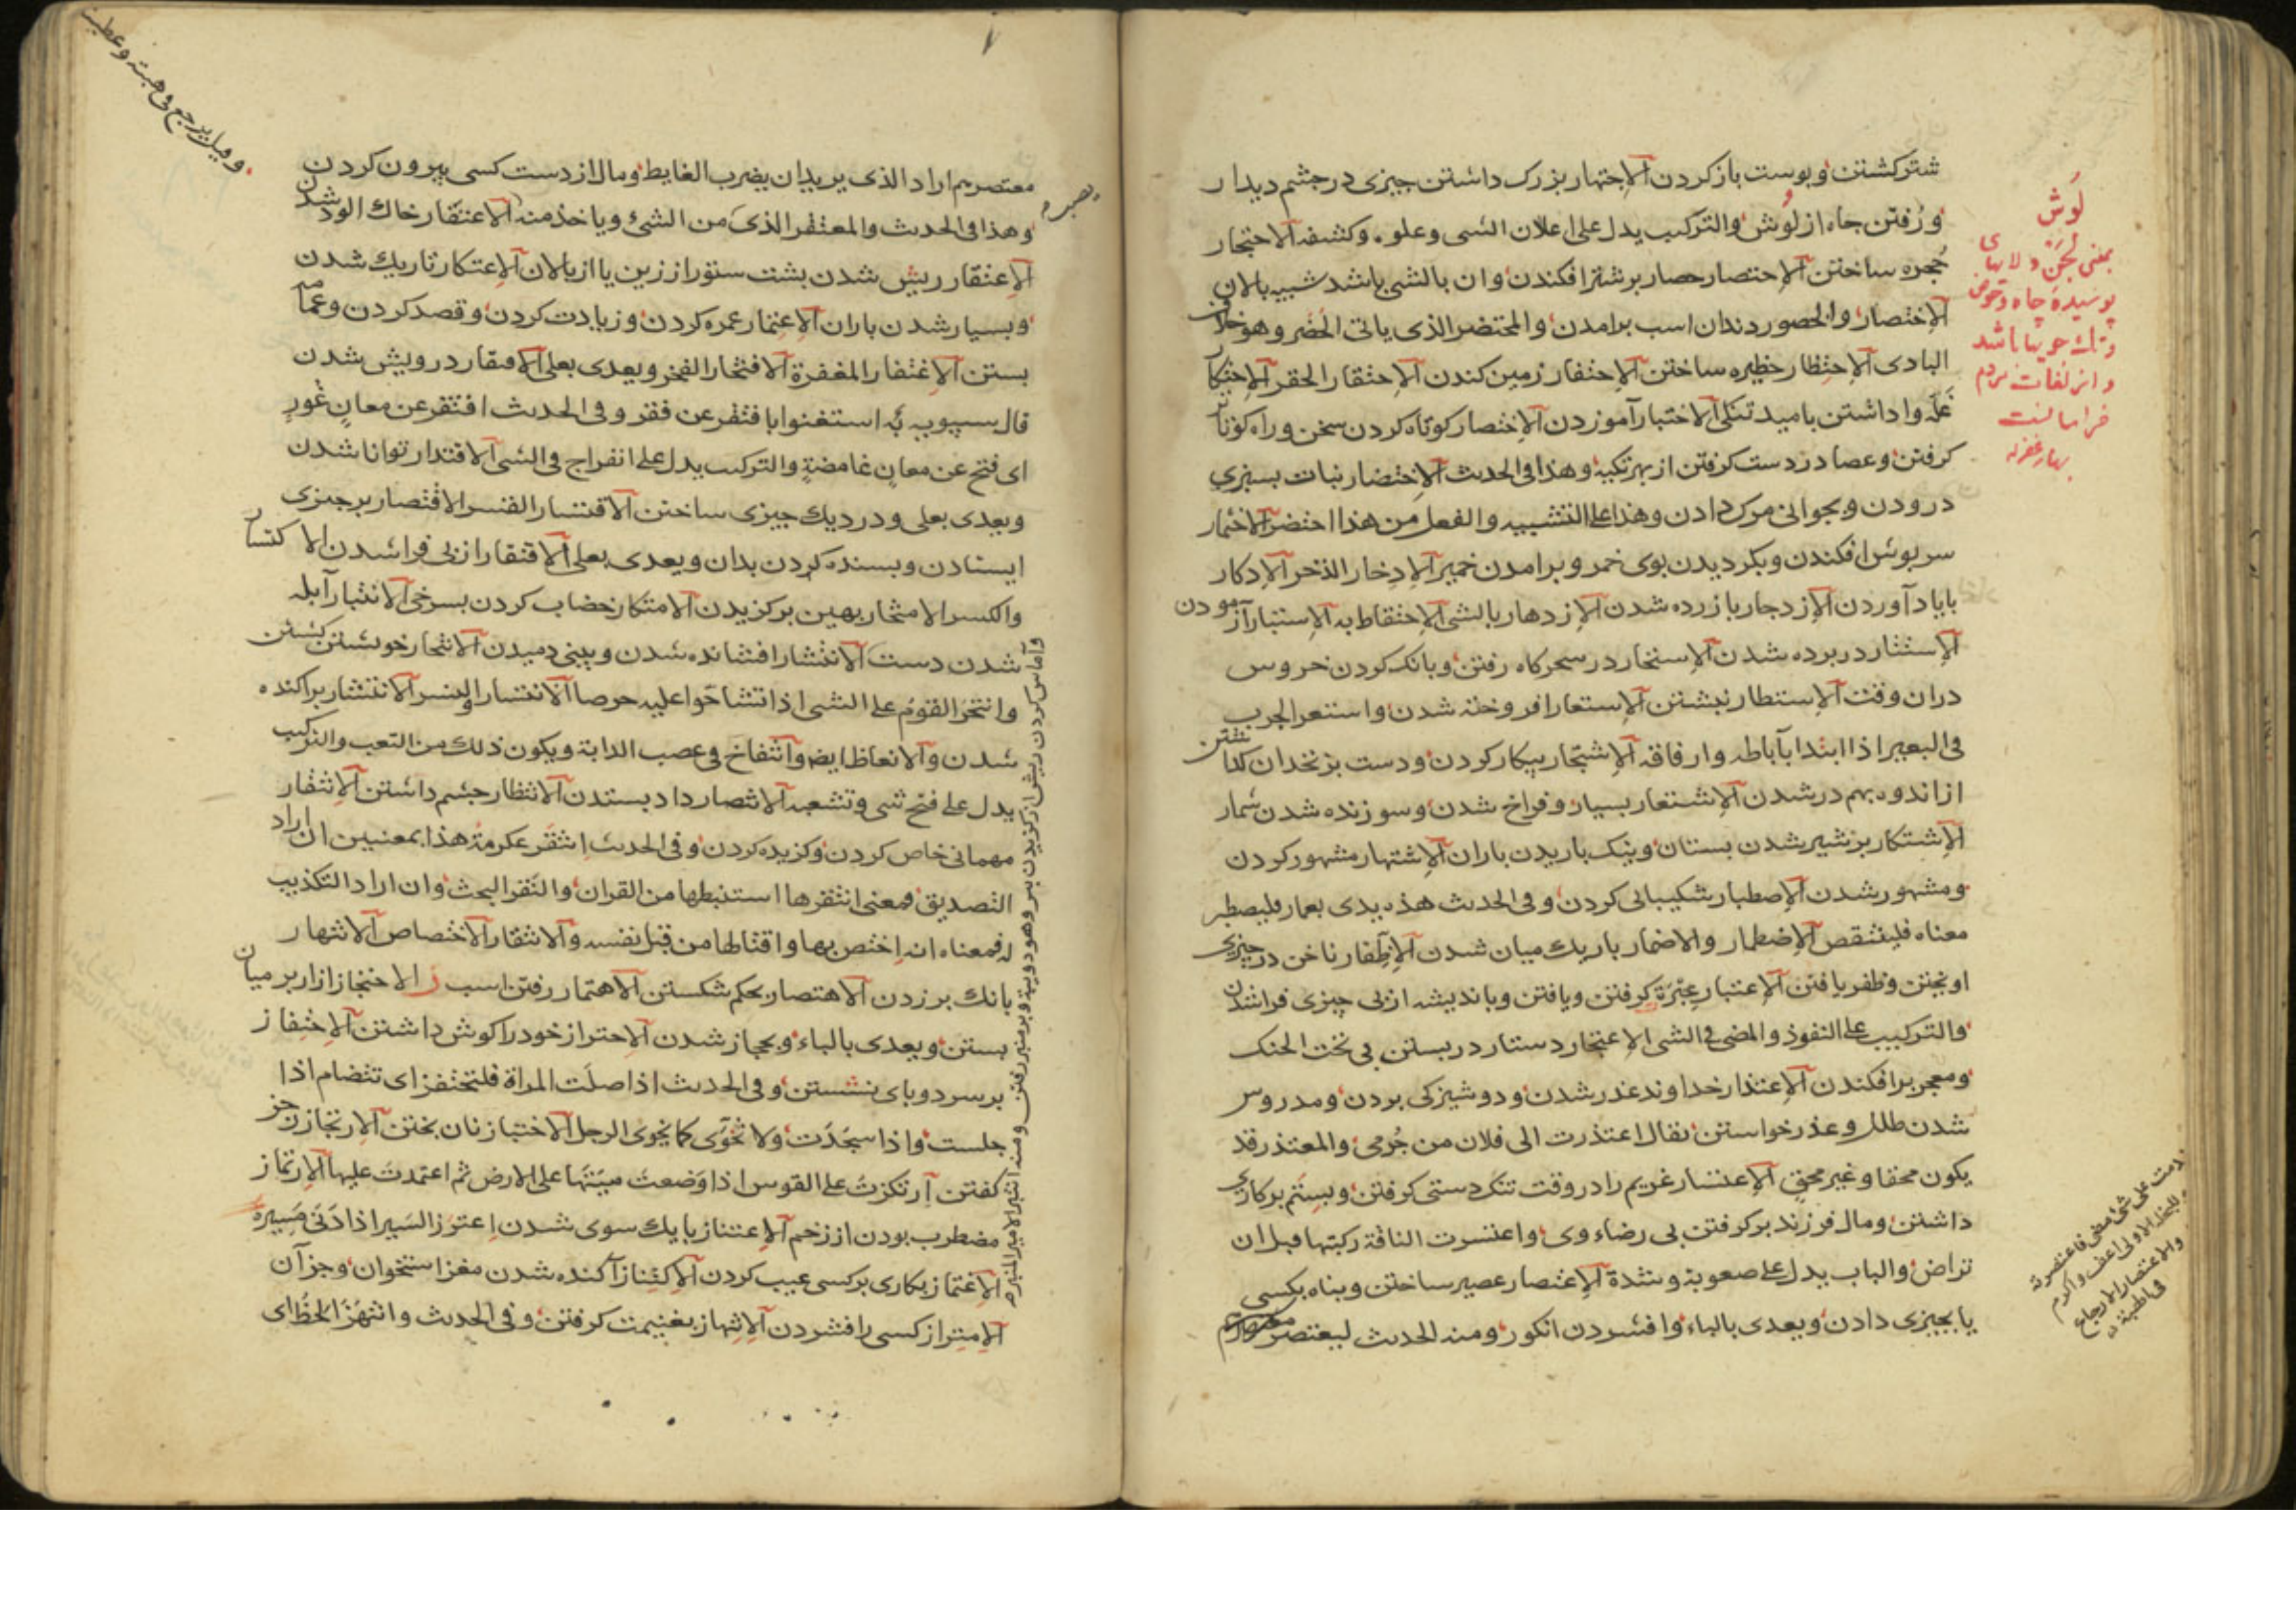 شتر کشتن و پوست باز کردن الاجتهار بزرک داشتن چیزی در چشم دیدار
و رُفتن چاه از لوش والترکیب یدل علی اعلان الشی وعلو. وکشفه الاحتجار
حُجره ساختن الاحتصار حصار بر شتر افکندن وان بالشی باشد شبیه بالان
الاختصار والحصور دندان اسب برامدن والمحتضر الذی یاتی الحَضَر وهو خلاف
البادی الاحتظار حظیره ساختن الاحتفار زمین کندن الاحتقار الحقر الاحتکار
غله وا داشتن بامید تنکی الاختبار آموزدن الاختصار کوتاه کردن سخن وراه کوتاه
کرفتن وعصا در دست کرفتن از بهر تکیه وهذا فی الحدیث الاختضار نبات بسبزی
درودن وبجوانی مرک دادن وهذا علی التشبیه والفعل من هذا اختضر الاختمار
سرپوش افکندن وبکردیدن بوی خمر وبرامدن خمیر الادخار الذخر الادکار
بایاد آوردن الازدجار باز زده شدن الازدهار بالشی الاحتفاظ به الاستبار آزمودن
الاستتار در پرده شدن الاستحار در سحرکاه رفتن وبانک کردن خروس
دران وقت الاستطار نبشتن الاستعار افروخته شدن واستعر الجرب
فی البعیر اذا ابتدا بآباطه وارفاقه الاشتجار پیکار کردن ودست بزنخدان
از اندوه بهم در شدن الاشتعار بسیار وفراخ شدن وسوزنده شدن شمار
الاشتکار برشیر شدن پستان ونیک باریدن باران الاشتهار مشهور کردن
ومشهور شدن الاصطبار شکیبائی کردن وفی الحدیث هذه یدی بعمار فلیصطبر
معناه فلیقتص الاضطمار والاضمار باریک میان شدن الاظفار ناخن در چیزی
اوکندن وظفر یافتن الاعتبار عِبْرَة کرفتن ویافتن وباندیشه از پی چیزی فراشدن
والترکیب علی النفوذ والمضی فی الشی الاعتجار دستار در بستن بی تحت الحنک
ومعجر برافکندن الاعتذار خداوند عذر شدن ودوشیزکی بردن ومدروس
شدن طلل وعذر خواستن یقال اعتذرت الی فلان من جُرمی والمعتذر قد
یکون محقا وغیر محق الاعتسار غریم را در وقت تنک دستی کرفتن وبستم برکاری
داشتن ومال فرزند برکرفتن بی رضاء وی واعتسرت الناقة رکبتها قبل ان
تراض والباب یدل علی صعوبة وشدة الاعتصار عصیر ساختن وپناه بکسی
یا بچیزی دادن ویعدی بالباء وافشردن انکور ومنه الحدیث لیعتصر
لَوْش
بمعنی لجَن ولایهای
پوسیدهٔ چاه وحوض
وتک جویها باشد
واز لغات مردم
خراسانست
معتصرهم اراد الذی یرید ان یضرب الغایط ومال از دست کسی بیرون کردن
وهذا فی الحدیث والمعتفر الذی من الشیٔ ویاخذ منه الاعتفار خاک الود شدن
الاعتقار ریش شدن پشت ستور از زین یا از پالان الاعتکار تاریک شدن
وبسیار شدن باران الاعتمار عمره کردن وزیارت کردن وقصد کردن وعمامه
بستن الاغتفار المغفرة الافتخار الفخر ویعدی بعلی الافتقار درویش شدن
قال سیبویه استغنوا بافتقر عن فقر وفی الحدیث افتقر عن معانٍ عُورٍ
ای فتح عن معانٍ غامضةٍ والترکیب یدل علی انفراج فی الشی الاقتدار توانا شدن
ویعدی بعلی ودر دیک چیزی ساختن الاقتسار القسر الاقتصار بر چیزی
ایستادن وبسنده کردن بدان ویعدی بعلی الاقتفار از پی فراشدن الاکتسار
والکسر الامتخار بهین برکزیدن الامتکار خضاب کردن بسرخی الانتبار آبله
شدن دست الانتثار افشانده شدن وبینی دمیدن الانتحار خویشتن کشتن
وانتحر القوم علی الشی اذا تشاحّوا علیه حرصا الانتسار والنسر الانتشار پراکنده
شدن والانعاظ ایضا وانتفاخ فی عصب الدابة ویکون ذلک من التعب والترکیب
یدل علی فتح شی وتشعبه الانتصار داد بستدن الانتظار چشم داشتن الانتقار
مهمانی خاص کردن وکزیده کردن وفی الحدیث انتقر عکرمة هذا بمعنیین ان اراد
التصدیق فمعنی انتقرها استنبطها من القران والنقر البحث وان اراد التکذیب
فمعناه انه اختص بها وافتالها من قبل نفسه والانتقار الاختصاص الانتهار
بانک برزدن الاهتصار بحکم شکستن الاهتمار رفتن اسب ز الاحتجاز ازار بر میان
بستن ویعدی بالباء وبحجاز شدن الاحتراز خود را کوش داشتن الاحتفاز
بر سر دو پای نشستن وفی الحدیث اذا صلّت المراة فلتحتفز ای تتضام اذا
جلست واذا سجدت ولا تخوّی کما یخوی الرجل الاختباز نان پختن الارتجاز رجز
کفتن ارتکزت علی القوس اذا وَضعت سِیَتَها علی الارض ثم اعتمدت علیها الارتماز
مضطرب بودن از زخم الاعتناز بایک سوی شدن
الاغتماز بکاری بر کسی عیب کردن الاکتناز آکنده شدن مغز استخوان وجز آن
الامتراز کسی را فشردن الانتهاز بغنیمت کرفتن وفی الحدیث وانتهز الحظ ای
وقیل یرجع فی هبته وعطیته